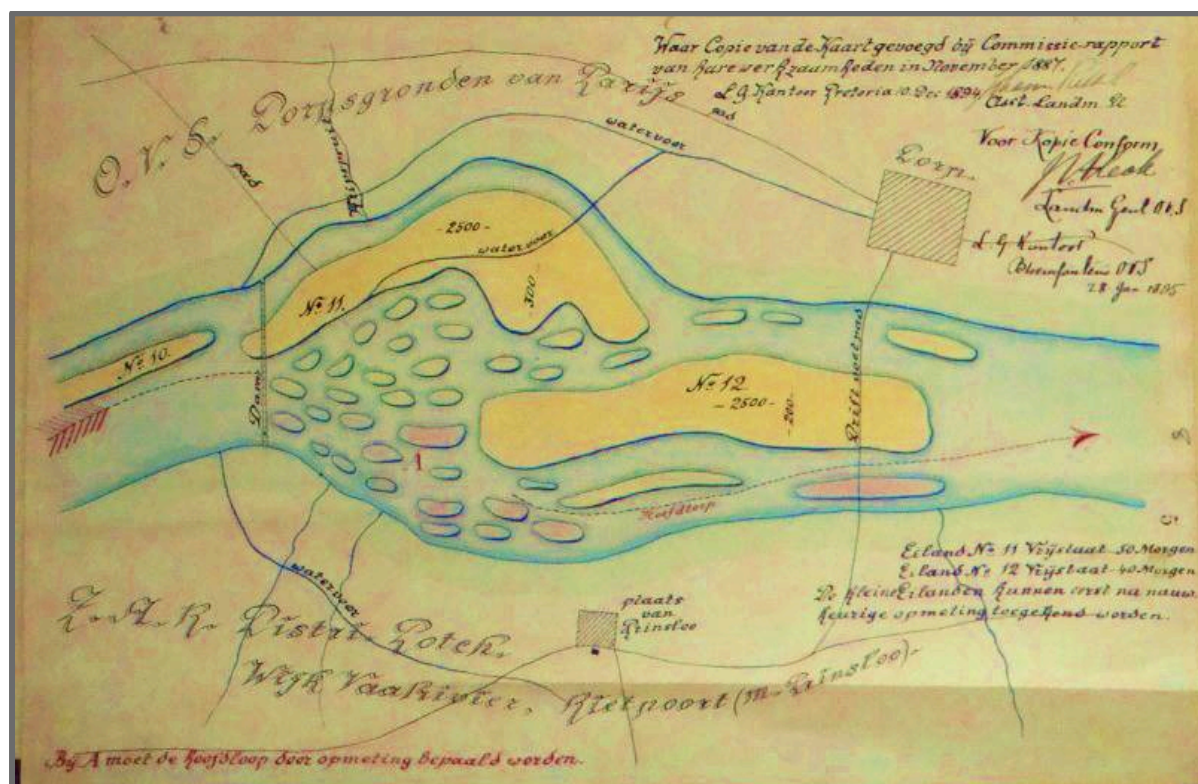 Waar Copie van de Kaart gevoegd bij Commissie-rapport
van hare werkzaamheden in November 1887.
L. G. Kantoor Pretoria 10 Dec 1894
Asst. Landm
Voor Kopie Conform
Landm Genl O.V.S
L. G. Kantoor
Bloemfontein O.V.S
28 Jan 1895
O. V. S. Dorpsgronden van Parijs
pad
pad
watervoor
Dorp.
-2500-
watervoor
300
No 11.
No 10.
Dam
No 12
-2500-
-200-
Drift voetpad
A
Hoofdloop
Eiland No 11 Vrijstaat 50 Morgen
Eiland No 12 Vrijstaat 40 Morgen
De kleine Eilanden kunnen eerst na nauw-
keurige opmeting toegekend worden.
watervoor
plaats
van
Prinsloo
Z. A. R. Distri. Potch.
Wijk Vaalrivier, Kletpoort (M. Prinsloo).
Bij A moet de hoofdloop door opmeting bepaald worden.